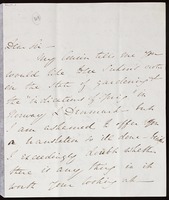 Dear Sir –
My Cousin tells me you
would like Mr notes
on the State of gardening &
the "indications of Spring" in
Norway & Denmark – but
I am ashamed to offer you
a translation so ill done –
& exceedingly doubt whether
there is any thing in it
worth your looking at –